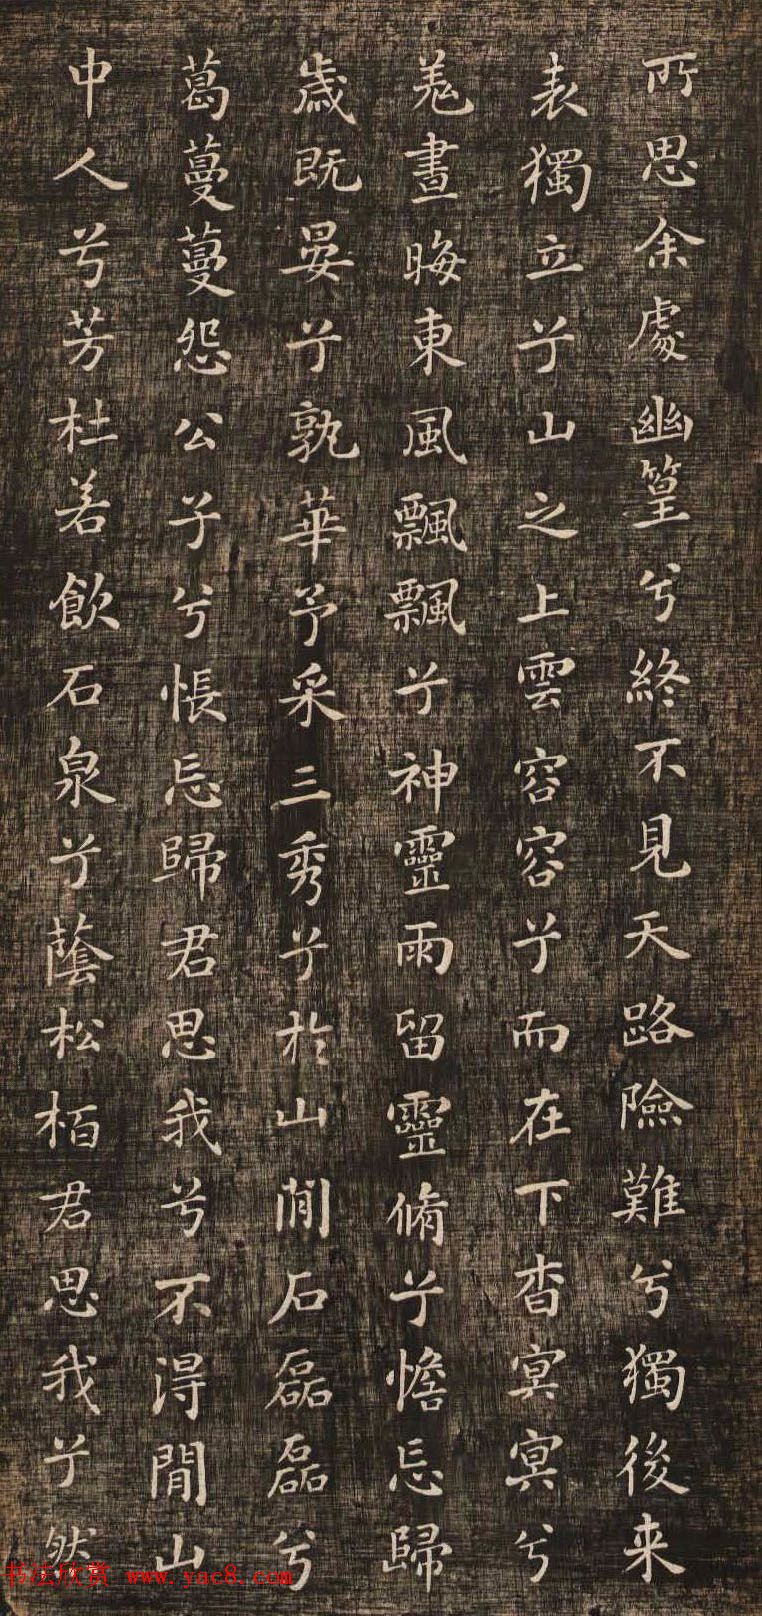 所思余處幽篁兮終不見天路險難兮獨後来
表獨立兮山之上雲容容兮而在下杳冥冥兮
羌晝晦東風飄飄兮神靈雨留靈脩兮憺忘歸
歲既晏兮孰華予采三秀兮於山間石磊磊兮
葛蔓蔓怨公子兮悵忘歸君思我兮不得閒山
中人兮芳杜若飲石泉兮蔭松栢君思我兮然
书法欣赏 www.yac8.com